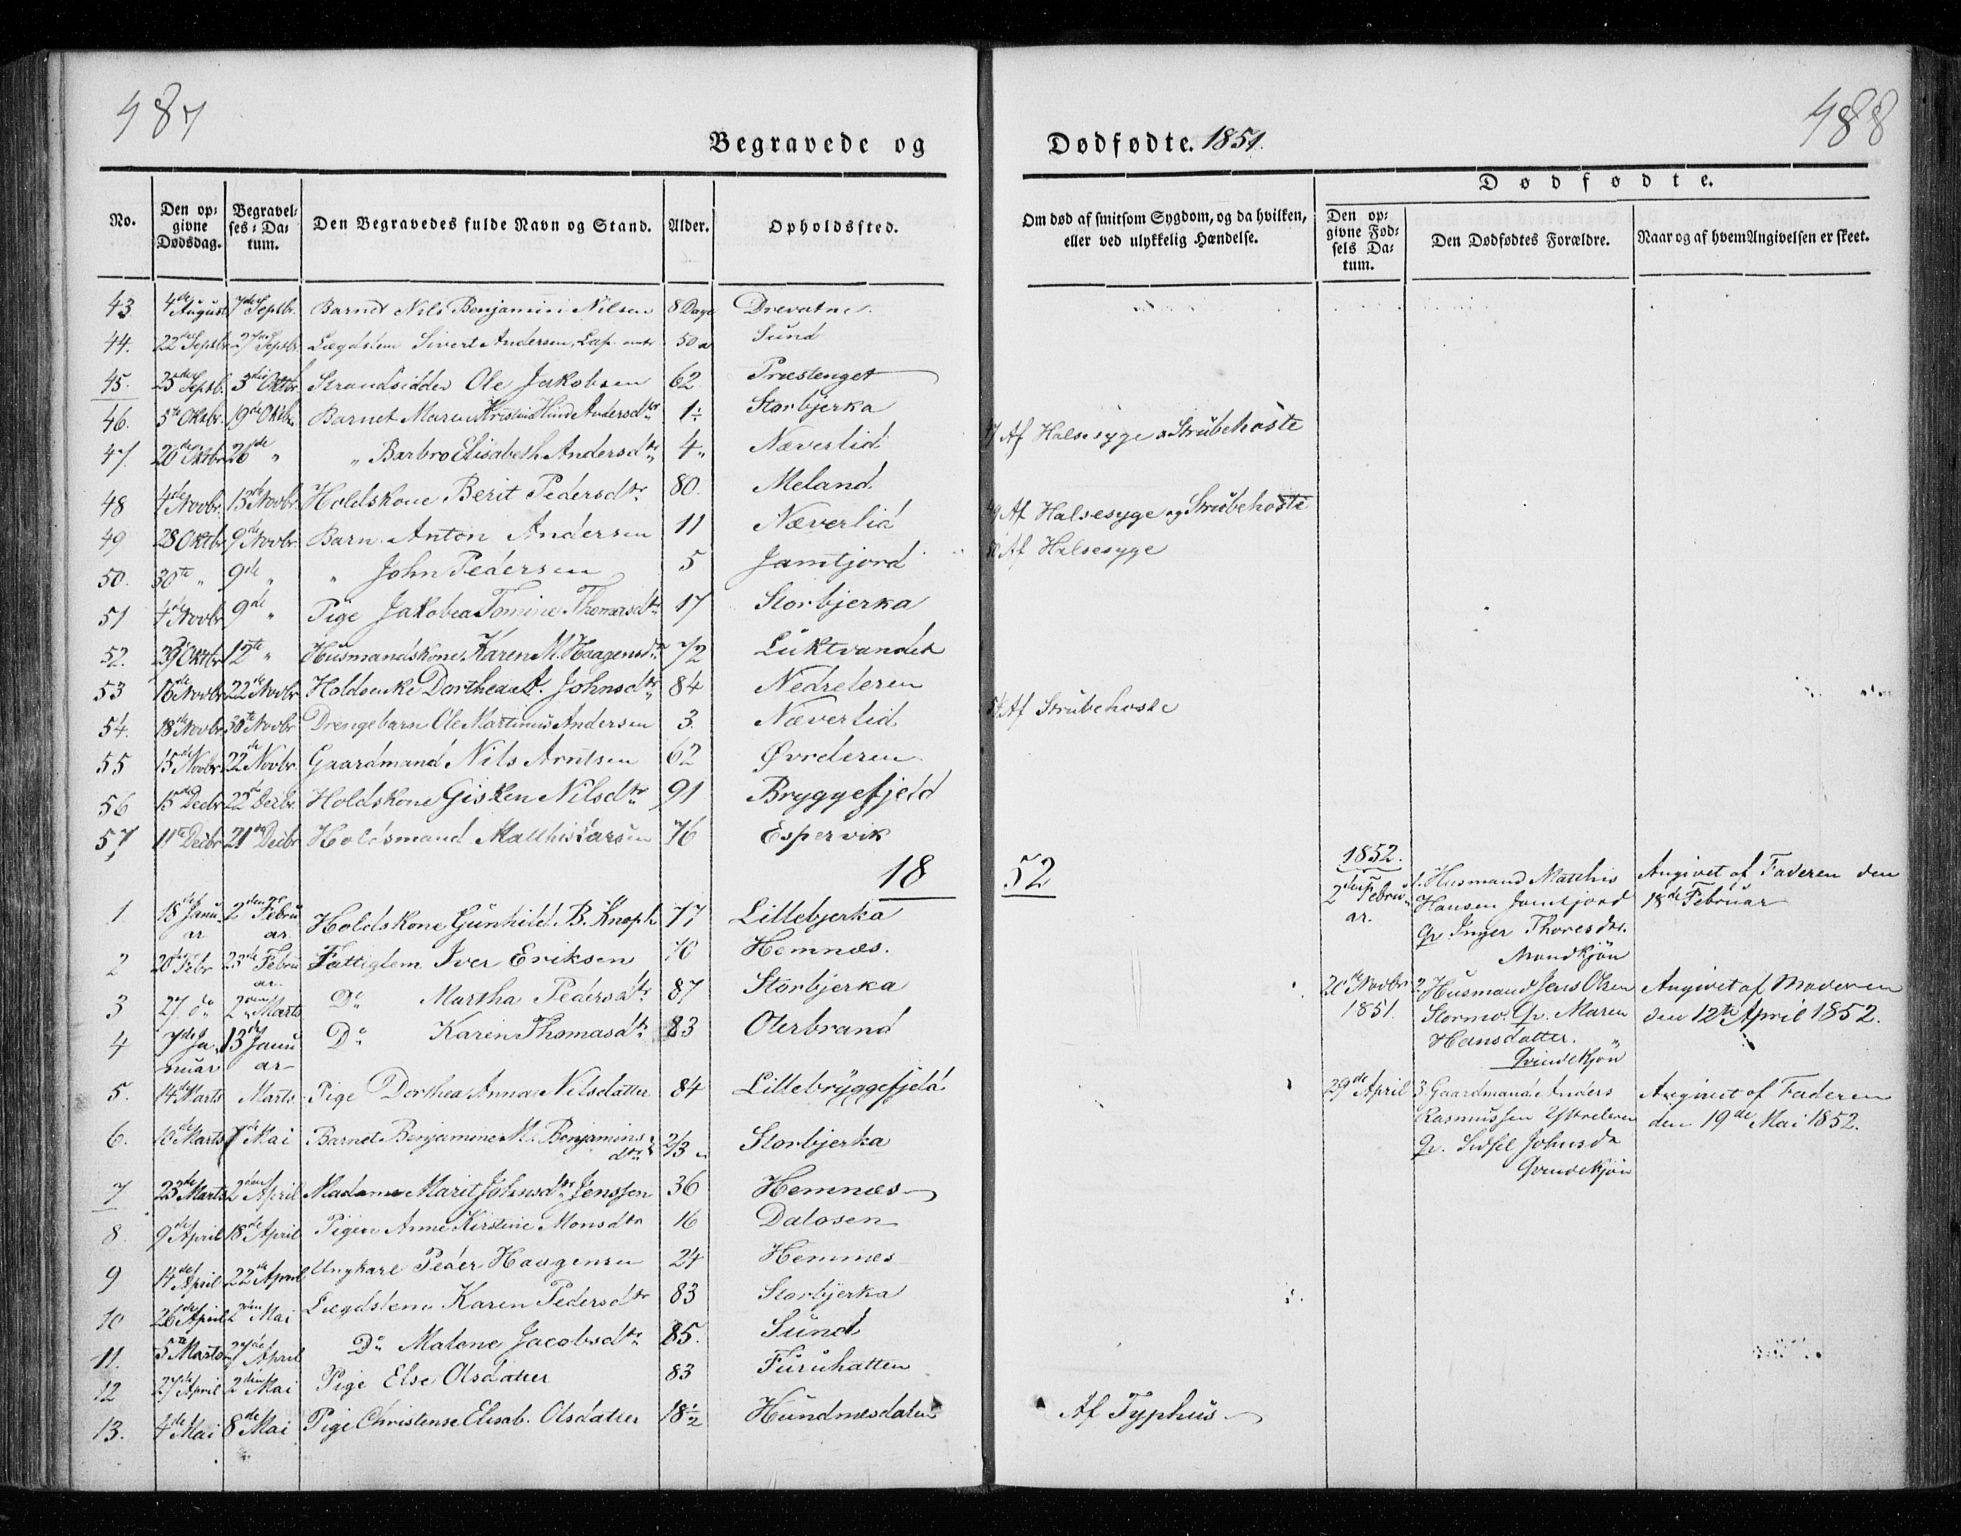 487
488
Begravede og
Dødfødte. 1851.
Dødfødte.
No.
Den op-
givne
Dødsdag.
Begravel-
ses-Da-
tum.
Den Begravedes fulde Navn og Stand.
Alder.
Opholdssted.
Om død af smitsom Sygdom, og da hvilken,
eller ved ulykkelig Hændelse.
Den op-
givne Fød-
sels Da-
tum.
Den Dødfødtes Forældre.
Naar og af hvem Angivelsen er skeet.
43 4de August 7de Septbr. Barnet Nils Benjamin Nilsen 8 Dage Drevatne
44. 22de Septbr 27de Septbr Lægdslem Sivert Andersen, Lap 50 Sund
45. 25de Septb. 3die Oktbr. Strandsidder Ole Jakobsen 62 Præstenget
46. 5te Oktbr. 19de Oktbr Barnet Maren Kristine Andersdtr 1 Storbjerka
47. 20de Oktbr 26de " " Barbro Elisabeth Andersdtr 4 " Næverlid 47 Af Halsesyge og Strubehoste
48 4de Novbr. 15de Novbr. Holdskone Berit Pedersdtr 80. Meland
49 28 Oktbr 9de Novbr. Barn Anton Andersen 11 Næverlid 49 Af Halsesyge og Strubehoste
50. 30te " 9de " " John Pedersen 5 Jamtjord 50 Af Halsesyge
51 4de Novbr 9de " Pige Jakobea Tomine Thomasdtr 17 Storbjerka
52. Oktbr 12te " Husmandskone Karen M. Haagensdtr 72 Luktvandet
53 16de Novbr 22de Novbr Holdsenke Dorthea A. Johnsdtr 84 Nedreleren
54. 18de Novbr 30te Novbr Drengebarn Ole Martinus Andersen 3. Næverlid 54 Af Strubehoste
55 15de Novbr. 22de Novbr. Gaardmand Nils Arntsen 62 Øvreleren
56 15de Decbr 22de Decbr. Holdskone Gisken Nilsdtr 91 Bryggefjeld
57, 11te Decbr 21de Decbr Holdsmand Matthis Larsen 76 Espervik
18 52
1 18de Janu
ar 2den Febru
ar. Holdskone Gunhild B. Knoph 77 Lillebjerka
2 20de Febr 23de Febru
ar. Fattiglem Iver Eriksen 70 Hemnæs.
3 27. do 2den Marts Do Martha Pedersdtr 87 Storbjerka
4 7de Ja-
nuar 13de Janu
ar Do Karen Thomasdtr 83 Oterbrand
5. 14de Marts Marts Pige Dorthea Anna Nilsdatter 84 Lillebryggefjeld
6. 10de Marts 7de Mai Barnet Benjamine M. Benjamins
dtr 2/3 Storbjerka
7 23de Marts 2den April Madame Marit Johnsdtr Jenssen 36 Hemnæs
8. 9de April 18de April Pigen Anne Kirstine Monsdtr 16 Dalosen
9 14de April 22de April Ungkarl Peder Haagensen 24 Hemnæs
10 26de April 2den Mai Lægdslem Karen Pedersdtr 83 Storbjerka
11. 5te Marts April Do Malene Jacobsdtr 85. Sund
12 27de April 2den Mai Pige Else Olsdatter 83 Furuhatten
13. 4de Mai 8de Mai Pige Christense Elisab. Olsdatter 18 1/2 Hundnæsdalen Af Typhus
1852.
2den Febru
ar. 1. Husmand Matthis
Hansen Jamtjord
Qv. Inger Thoresdtr.
Mandkjøn
Angivet af Faderen den
18de Februar
20de Novbr
1851. 2. Husmand Jens Olsen
Stormo. Qv. Maren
Hansdatter.
Qvindekjøn
Angivet af Moderen
den 12te April 1852.
29de April 3 Gaardmand Anders
Rasmussen Ytreleren
Qv. Sidsel Johnsdtr
Qvindekjøn
Angivet af Faderen
den 19de Mai 1852.